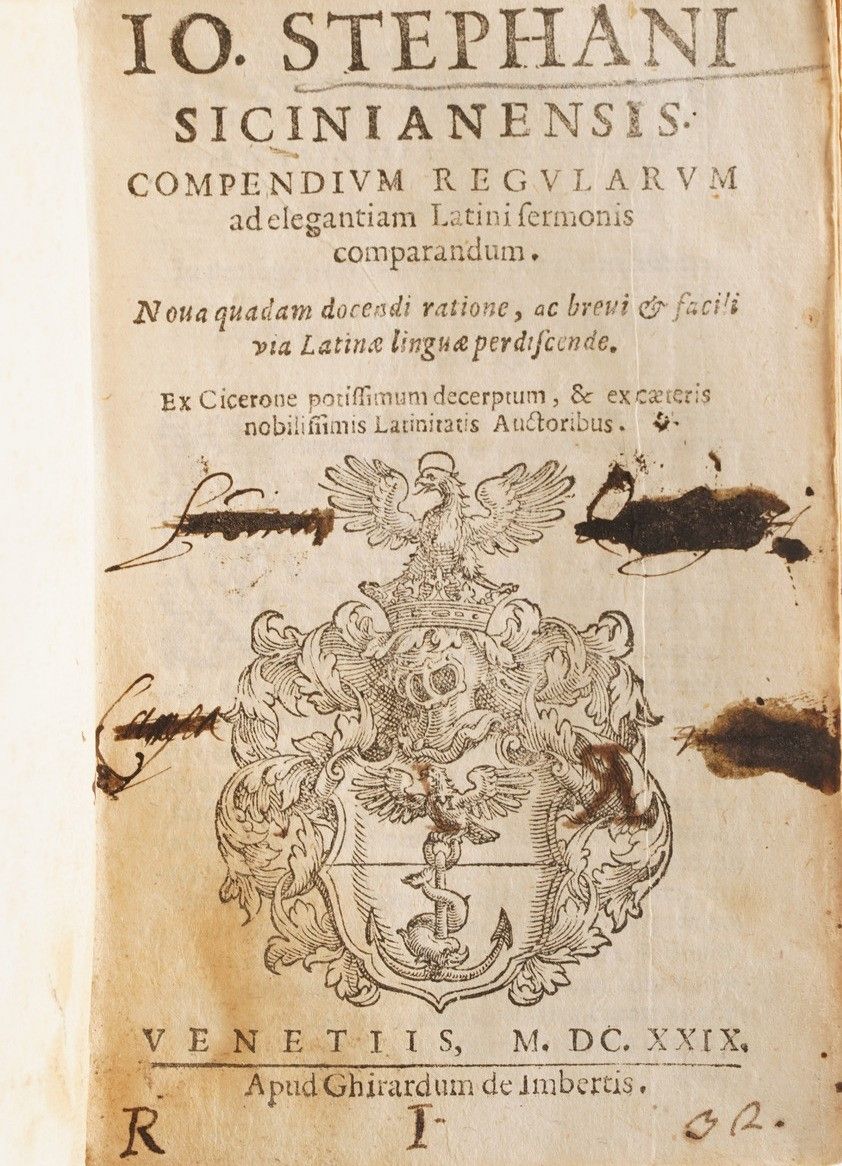 IO. STEPHANI
SICINIANENSIS.
COMPENDIVM REGVLARVM
ad elegantiam Latini ſermonis
comparandum.
Noua quadam docendi ratione, ac breui & facili
via Latinæ linguæ perdiſcende.
Ex Cicerone potiſſimum decerptum, & ex cæteris
nobiliſſimis Latinitatis Auctoribus.
VENETIIS, M. DC. XXIX.
Apud Ghirardum de Imbertis.
R I 32.